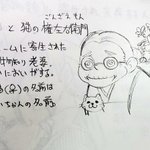 ごんざえもん
と 猫の権左右衛門
ームに寄生された
老婆
においがする。
の名前は
ちゃんの名前